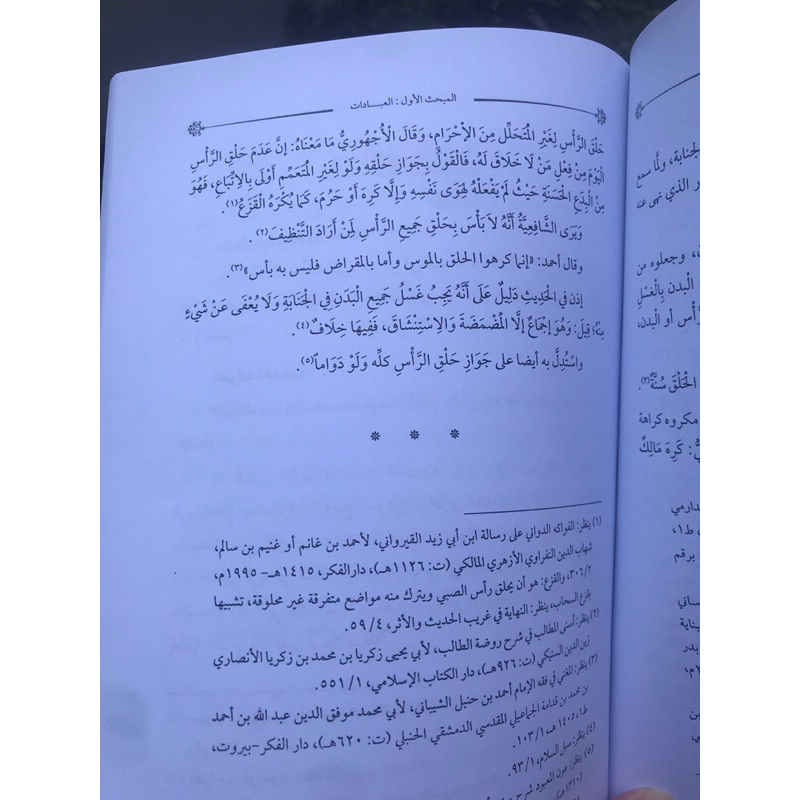 المبحث الأول : العبـــادات
حَلْقِ الرَّأْسِ لِغَيْرِ الْمُتَحَلِّلِ مِنَ الْإِحْرَامِ، وَقَالَ الْأُجْهُورِيُّ مَا مَعْنَاهُ: إنَّ عَدَمَ حَلْقِ الرَّأْسِ
الْيَوْمَ مِنْ فِعْلِ مَنْ لَا خَلَاقَ لَهُ، فَالْقَوْلُ بِجَوَازِ حَلْقِهِ وَلَوْ لِغَيْرِ الْمُتَعَمِّمِ أَوْلَى بِالِاتِّبَاعِ، فَهُوَ
مِنْ الْبِدَعِ الْحَسَنَةِ حَيْثُ لَمْ يَفْعَلْهُ لِهَوَى نَفْسِهِ وَإِلَّا كَرِهَ أَوْ حَرُمَ، كَمَا يُكْرَهُ الْقَزَعُ(١).
وَيَرَى الشَّافِعِيَّةُ أَنَّهُ لاَ بَأْسَ بِحَلْقِ جَمِيعِ الرَّأْسِ لِمَنْ أَرَادَ التَّنْظِيفَ(٢) .
وقال أحمد: «إنما كرهوا الحلق بالموس وأما بالمقراض فليس به بأس»(٣).
إذن في الْحَدِيثِ دَلِيلٌ عَلَى أَنَّهُ يَجِبُ غَسْلُ جَمِيعِ الْبَدَنِ فِي الْجَنَابَةِ وَلَا يُعْفَى عَنْ شَيْءٍ
مِنْهُ؛ قِيلَ: وَهُوَ إجْمَاعٌ إلَّا الْمَضْمَضَةَ وَالِاسْتِنْشَاقَ، فَفِيهَا خِلَافٌ(٤).
واسْتُدِلَّ به أيضا على جَوَازِ حَلْقِ الرَّأْسِ كلِّه وَلَوْ دَوَاماً(٥).
* * *
(١) ينظر: الفواكه الدواني على رسالة ابن أبي زيد القيرواني، لأحمد بن غانم أو غنيم بن سالم،
شهاب الدين النفراوي الأزهري المالكي (ت: ١١٢٦هـ)، دارالفكر، ١٤١٥هـ- ١٩٩٥م،
٣٠٦/٢، والقزع: هو أن يحلق رأس الصبي ويترك منه مواضع متفرقة غير محلوقة، تشبيها
بقزع السحاب، ينظر: النهاية في غريب الحديث والأثر، ٥٩/٤.
(٢) ينظر: أسنى المطالب في شرح روضة الطالب، لأبي يحيى زكريا بن محمد بن زكريا الأنصاري
زين الدين السنيكي (ت: ٩٢٦هـ)، دار الكتاب الإسلامي، ٥٥١/١.
(٣) ينظر: المغني في فقه الإمام أحمد بن حنبل الشيباني، لأبي محمد موفق الدين عبد الله بن أحمد
بن محمد بن قدامة الجماعيلي المقدسي الدمشقي الحنبلي (ت: ٦٢٠هـ)، دار الفكر-بيروت،
ط١، ١٤٠٥هـ، ١٠٣/١.
(٤) ينظر: سبل السلام، ٩٣/١.
(٥) ينظر: عون المعبود شرح
لجنابة، ولَمَّا سمع
ر الذي نهى عنه
، وجعلوه من
الْبدن بِالْغَسْلِ
رَّأس أو الْبدن،
الْحَلْقَ سُنَّةٌ(٣).
مكروه كراهة
: كَرِهَ مَالِكٌ
دارمي
، ط١،
برقم